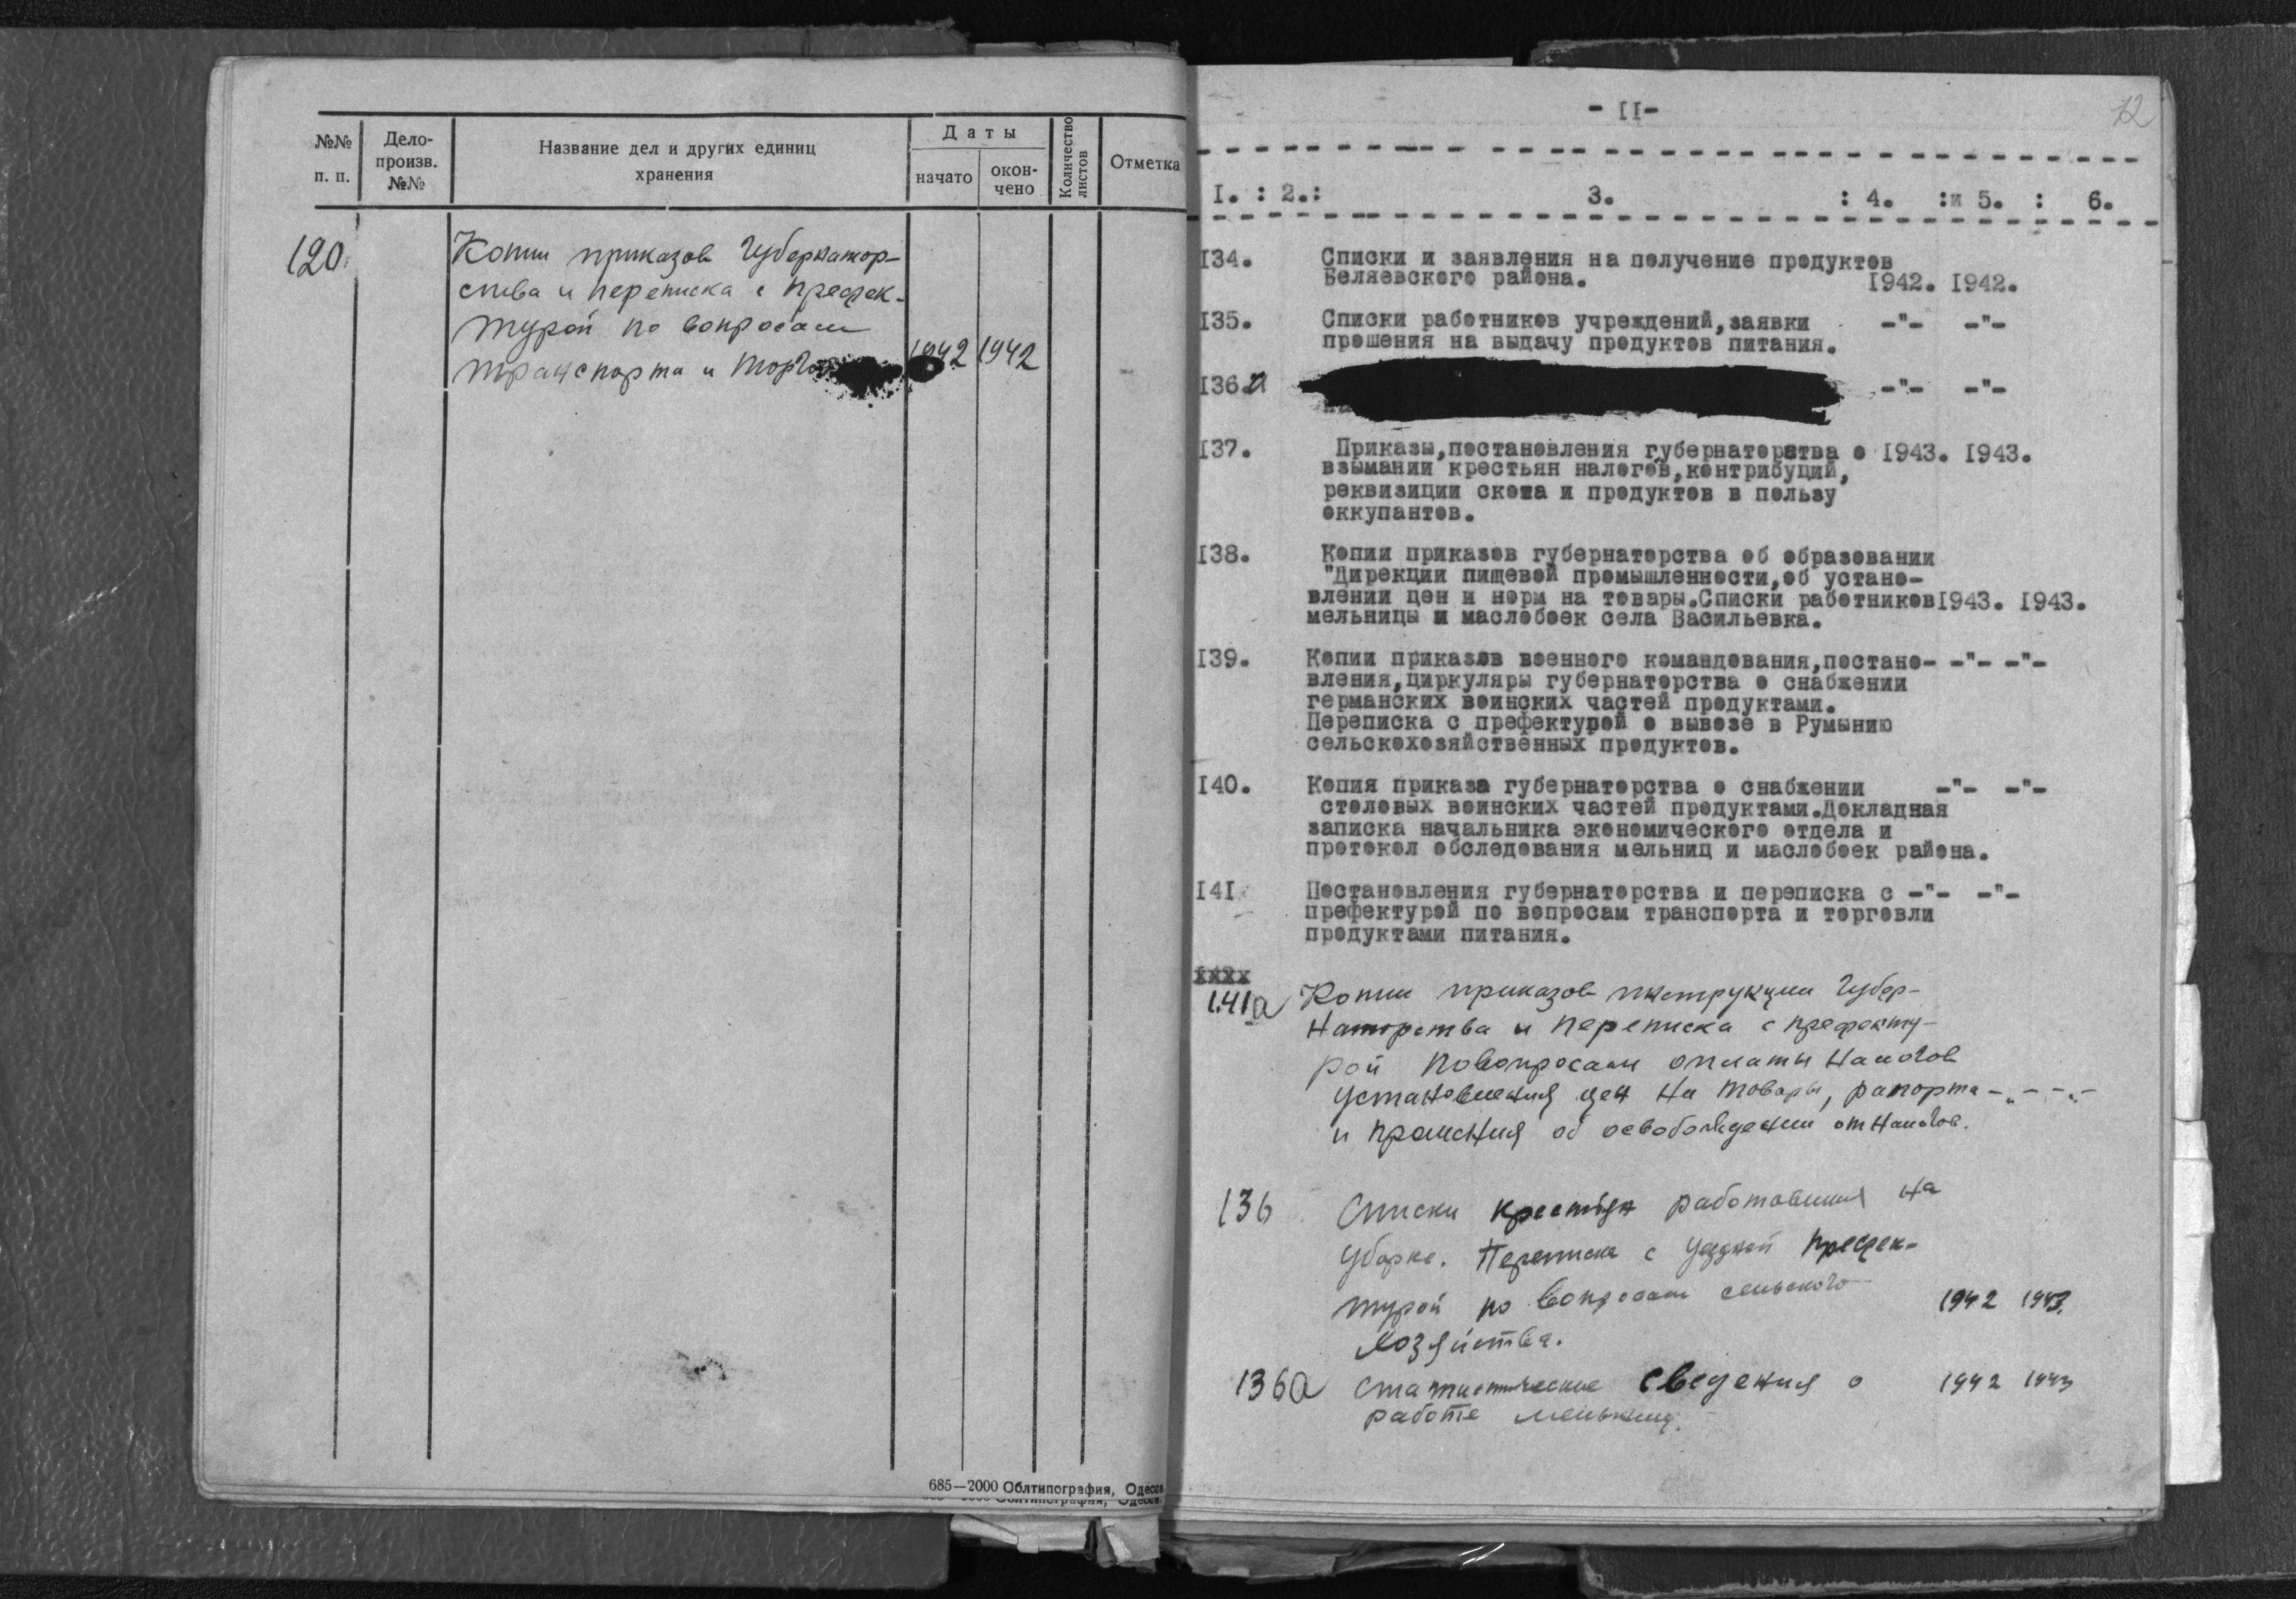 №№ п. п.
Дело-произв. №№
Название дел и других единиц
хранения
Даты
начато
окон-
чено
Количество листов
Отметка
120.
Копии приказов Губернатор-
ства и переписка с префек-
турой по вопросам
транспорта и торгов
1942 1942
685—2000 Облтипография, Одесса.
- II-
12
I. : 2.: 3. : 4. :и 5. : 6.
I34. Списки и заявления на получение продуктов
Беляевского района. I942. I942.
I35. Списки работников учреждений,заявки -"- -"-
прошения на выдачу продуктов питания.
I36.а -"- -"-
I37. Приказы,постановления губернаторства о I943. I943.
взымании крестьян налогов,контрибуций,
реквизиции скота и продуктов в пользу
оккупантов.
I38. Копии приказов губернаторства об образовании
"Дирекции пищевой промышленности,об устано-
влении цен и норм на товары.Списки работников I943. I943.
мельницы и маслобоек села Васильевка.
I39. Копии приказов военного командования,постано- -"- -"-
вления,циркуляры губернаторства о снабжении
германских воинских частей продуктами.
Переписка с префектурой о вывозе в Румынию
сельскохозяйственных продуктов.
I40. Копия приказа губернаторства о снабжении -"- -"-
столовых воинских частей продуктами.Докладная
записка начальника экономического отдела и
протокол обследования мельниц и маслобоек района.
I4I Постановления губернаторства и переписка с -"- -"-
префектурой по вопросам транспорта и торговли
продуктами питания.
хххх
141а Копии приказов инструкции Губер-
наторства и переписка с префекту-
рой по вопросам оплаты налогов
установления цен на товары, рапорта -"- -"-
и прошения об освобождении от налогов.
136 Списки крестьян работавших на
уборке. Переписка с уездной префек-
турой по вопросам сельского
хозяйства. 1942 1943.
136а Статистические сведения о 1942 1943
работе мельниц.